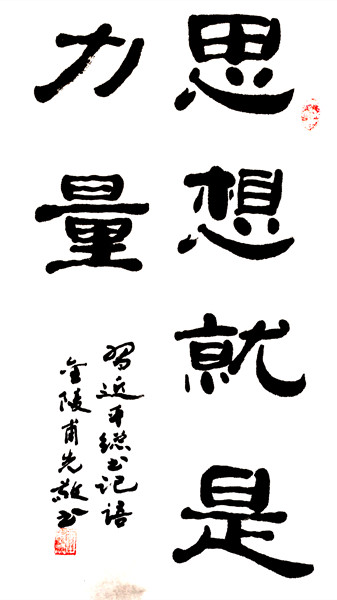 思想就是
力量
习近平总书记语
金陵甫先敬书